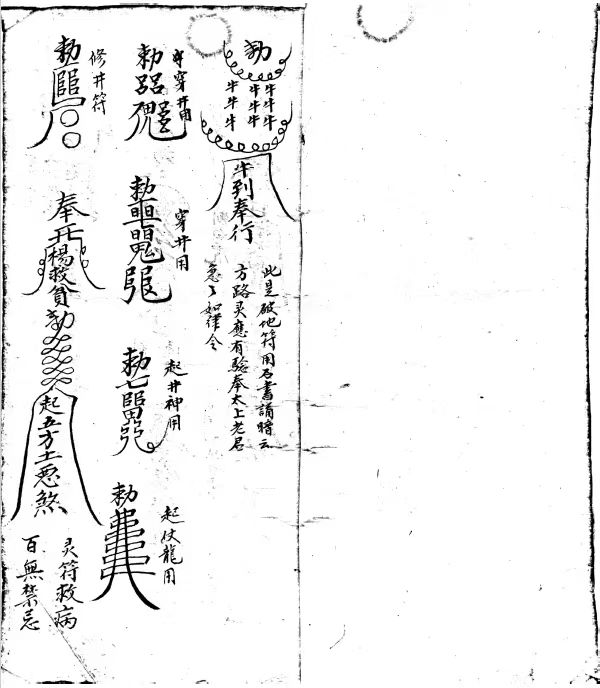 勅
牛牛牛
牛牛牛
牛牛牛
牛到奉行
此是破他符用石書誦暗云
方路灵應有驗奉太上老君
急々如律令
勅
穿井用
勅
穿井用
勅
起井神用
勅
起伏龍用
勅
修井符
奉
楊救貧勅
起五方土惡煞
灵符救病
百無禁忌